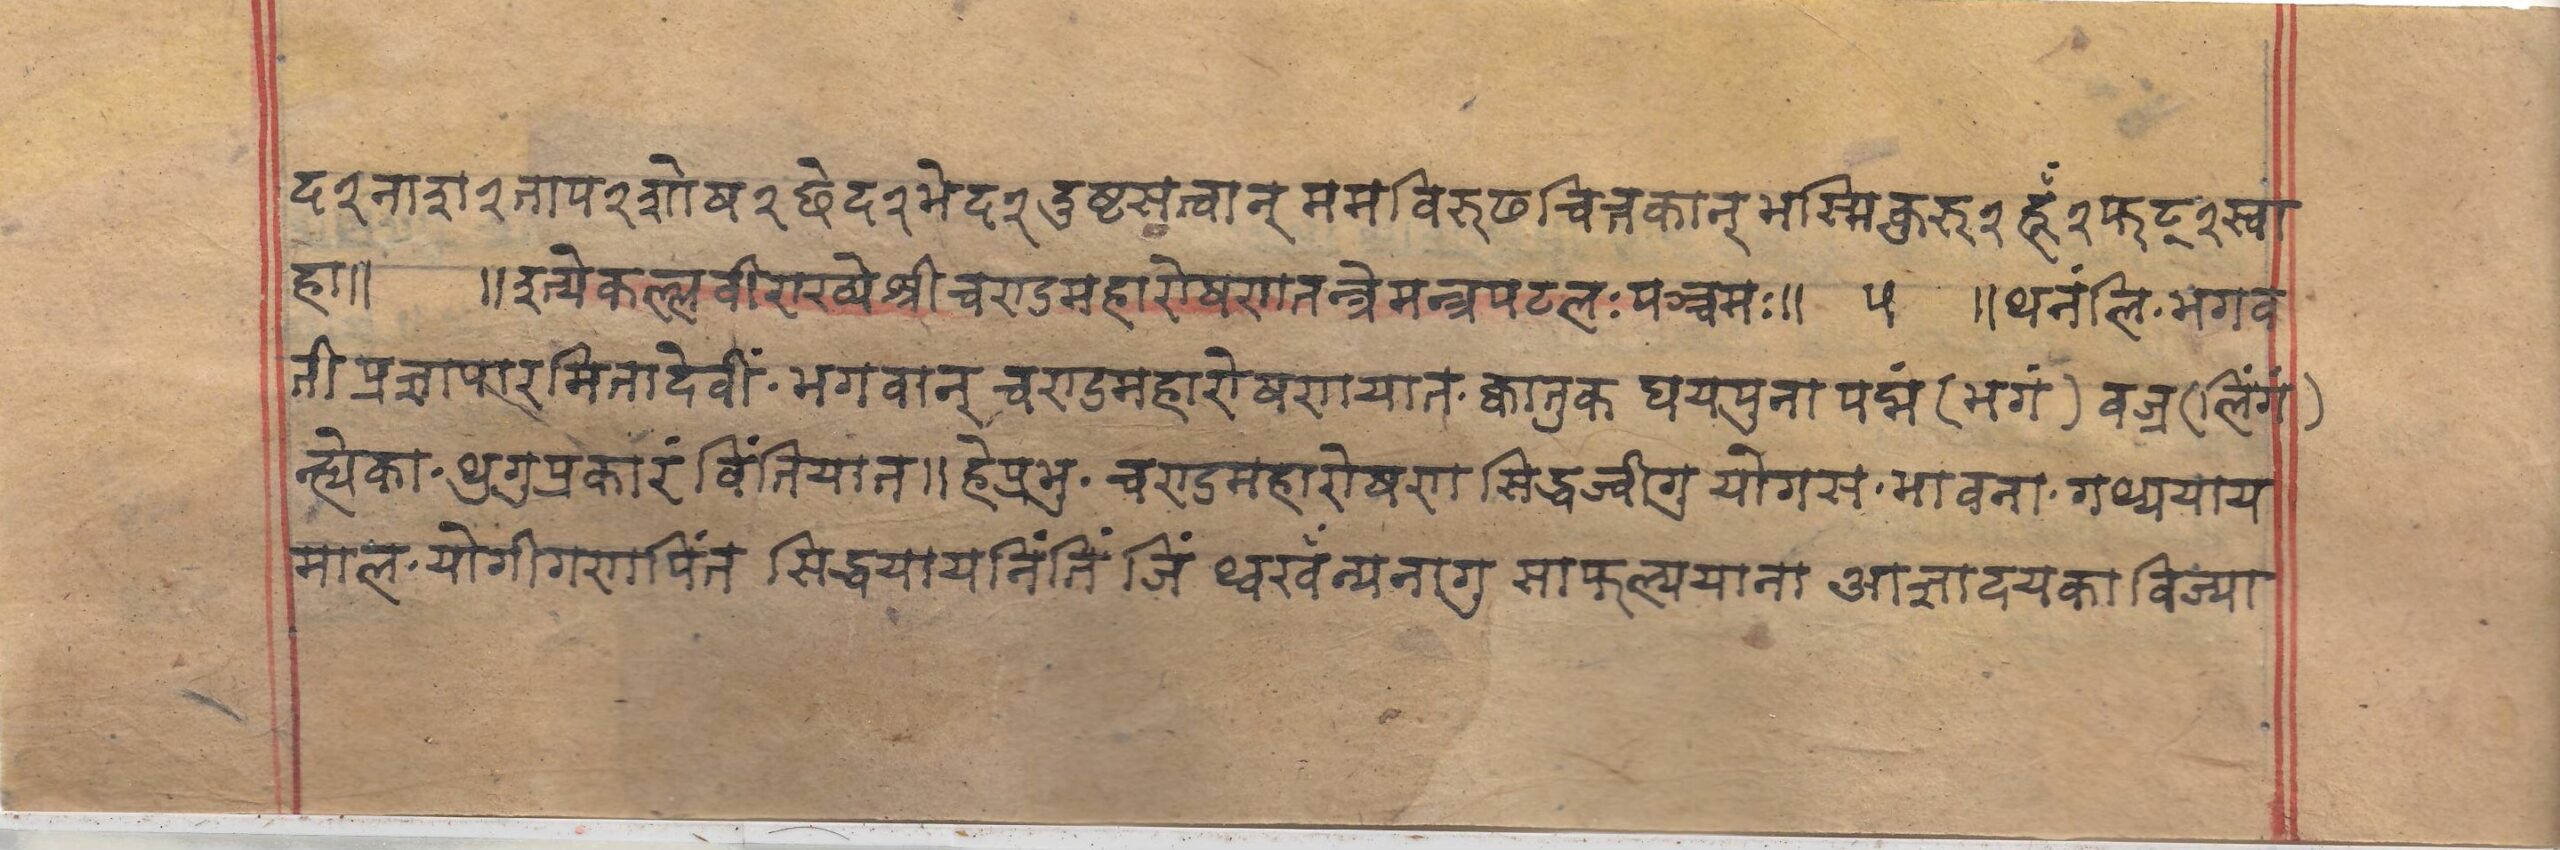 द२नाशा२ताप२शोष२छेद२भेद२दुष्टसत्वान् ममविरुद्धचित्तकान् भस्मिकुरु२हूँ२फट्२स्वा
हा॥ ॥इत्येकल्लवीराख्येश्रीचण्डमहारोषणतन्त्रेमन्त्रपटलःपञ्चमः॥ ५ ॥थनंलि·भगव
तीप्रज्ञापारमितादेवीं·भगवान् चण्डमहारोषणयात·क्वातुक घयपुना पद्मं(भगं) वज्र(लिंगं)
न्ह्येका·थुगुप्रकारं विंतियात॥हेप्रभु·चण्डमहारोषण सिद्धज्वीगु योगस·भावना·गथ्ययाय
माल·योगीगणपिंत सिद्धयायनिंतिं जिं थ्वखँन्यनागु साफल्ययाना आज्ञादयकाविज्या